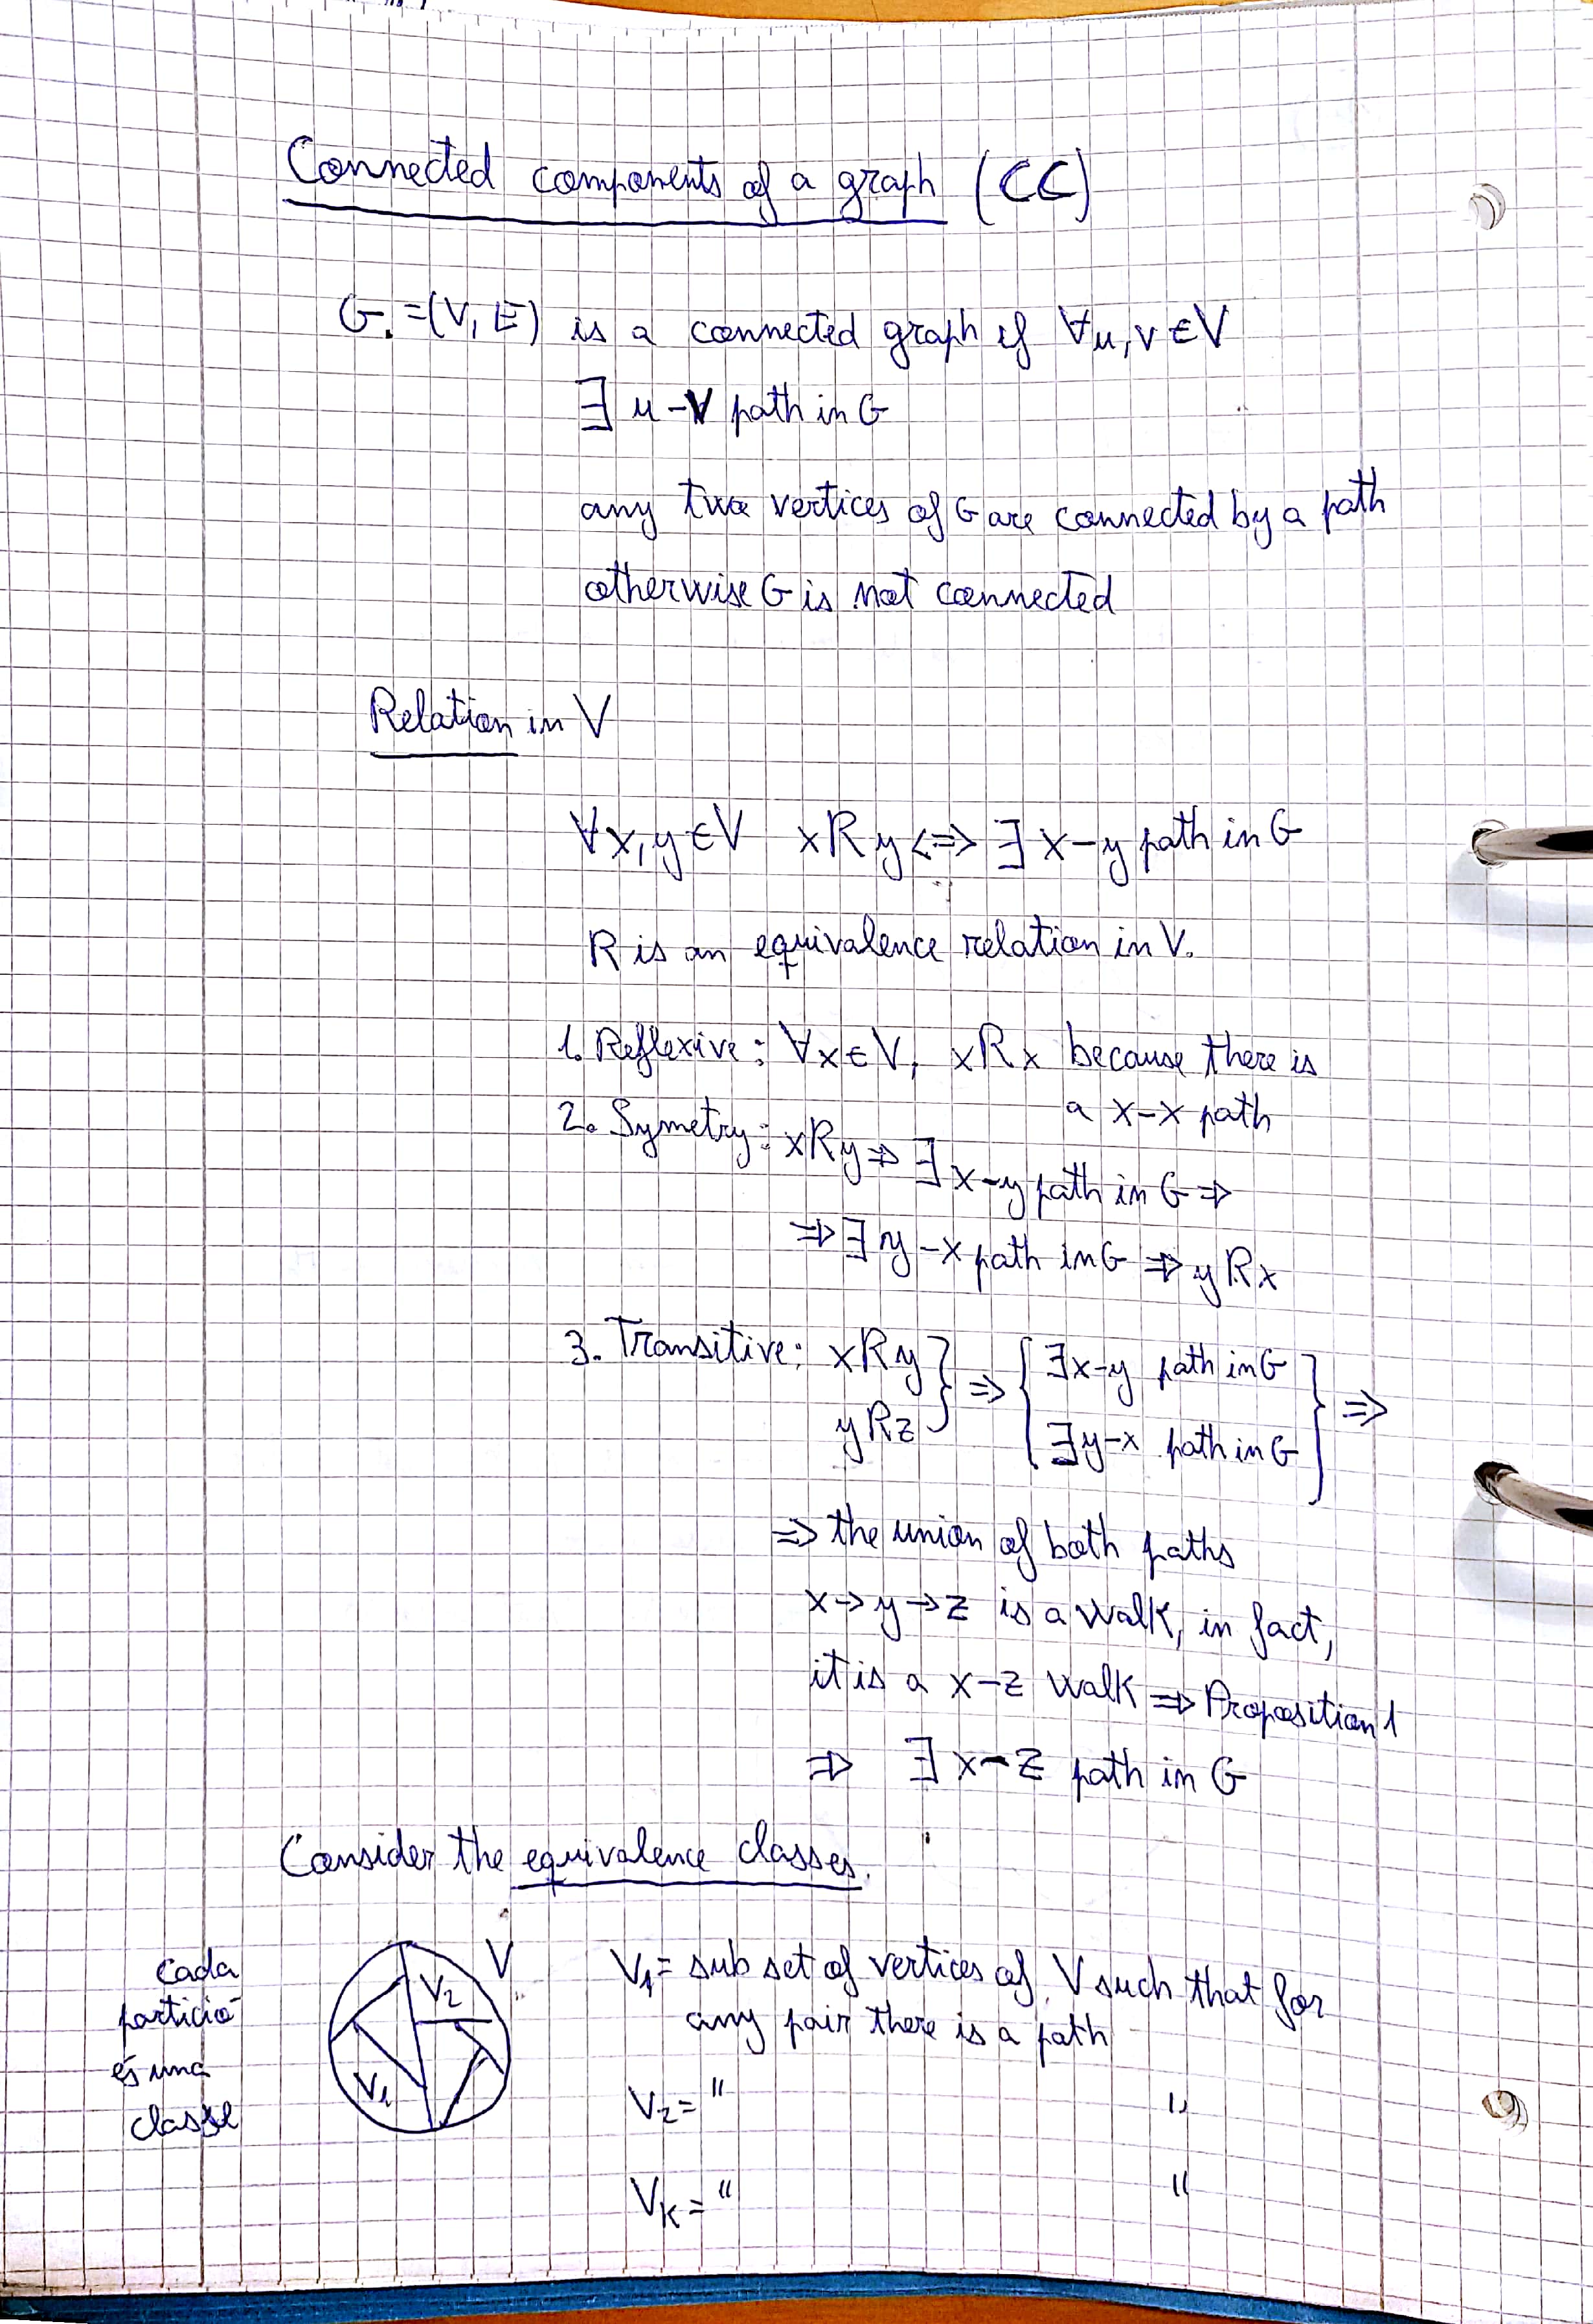 Connected components of a graph (CC)
G.=(V, E) is a connected graph if ∀u,v∈V
∃ u-v path in G
any two vertices of G are connected by a path
otherwise G is not connected
Relation in V
∀x,y∈V xRy <=> ∃ x-y path in G
R is an equivalence relation in V.
1. Reflexive: ∀x∈V, xRx because there is
a x-x path
2. Symetry: xRy ⇒ ∃ x-y path in G ⇒
⇒ ∃ y-x path in G ⇒ yRx
3. Transitive: xRy } ⇒ { ∃x-y path in G } ⇒
yRz ∃y-x path in G
⇒ the union of both paths
x→y→z is a walk, in fact,
it is a x-z walk ⇒ Proposition 1
⇒ ∃ x-z path in G
Consider the equivalence classes.
cada
partició
és una
classe
V
V2
V1
V1= subset of vertices of V such that for
any pair there is a path
V2= " "
VK= " "